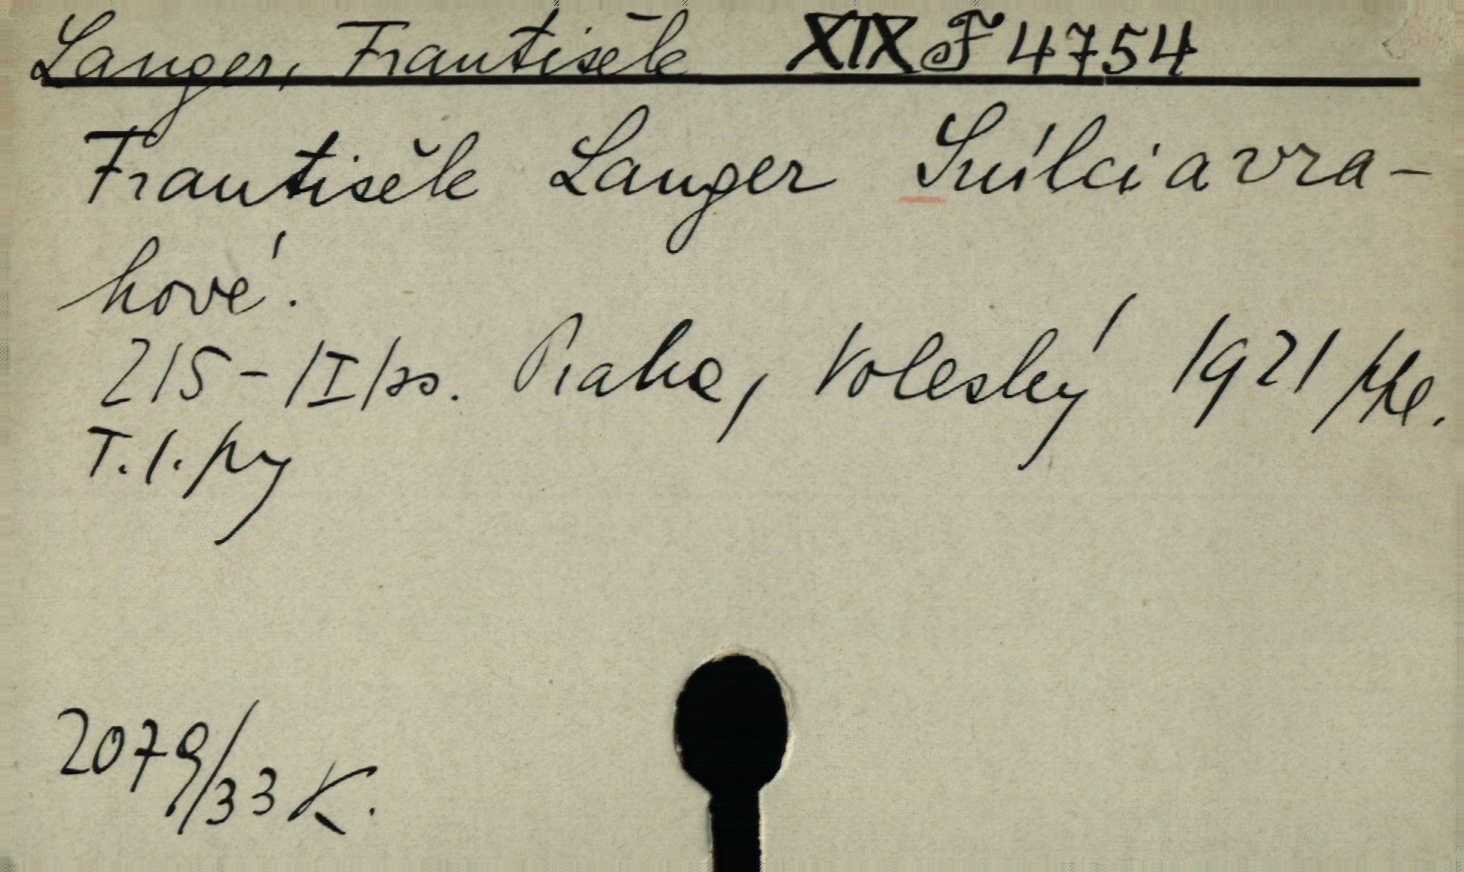 Langer, František XIX F 4754
František Langer Snílci a vra-
hové.
215-/I/ss. Praha, Voleský 1921
T. 1.
2079/33 K.